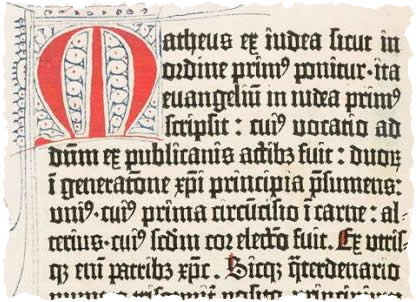 Matheus ex iudea sicut in
ordine primꝰ ponitur·ita
euangeliū in iudea primꝰ
scripsit : cuiꝰ uocatio ad
dūm ex publicanis actibꝫ fuit : duoꝝ
ī generatōne xp̄i principia p̄sumens:
vniꝰ·cuiꝰ prima circūcisio ī carne : al-
terius·cuiꝰ scdm cor electō fuit. Ex vtris-
qꝫ eni patribꝫ xpc̄. Sicqꝫ q̄terdenario